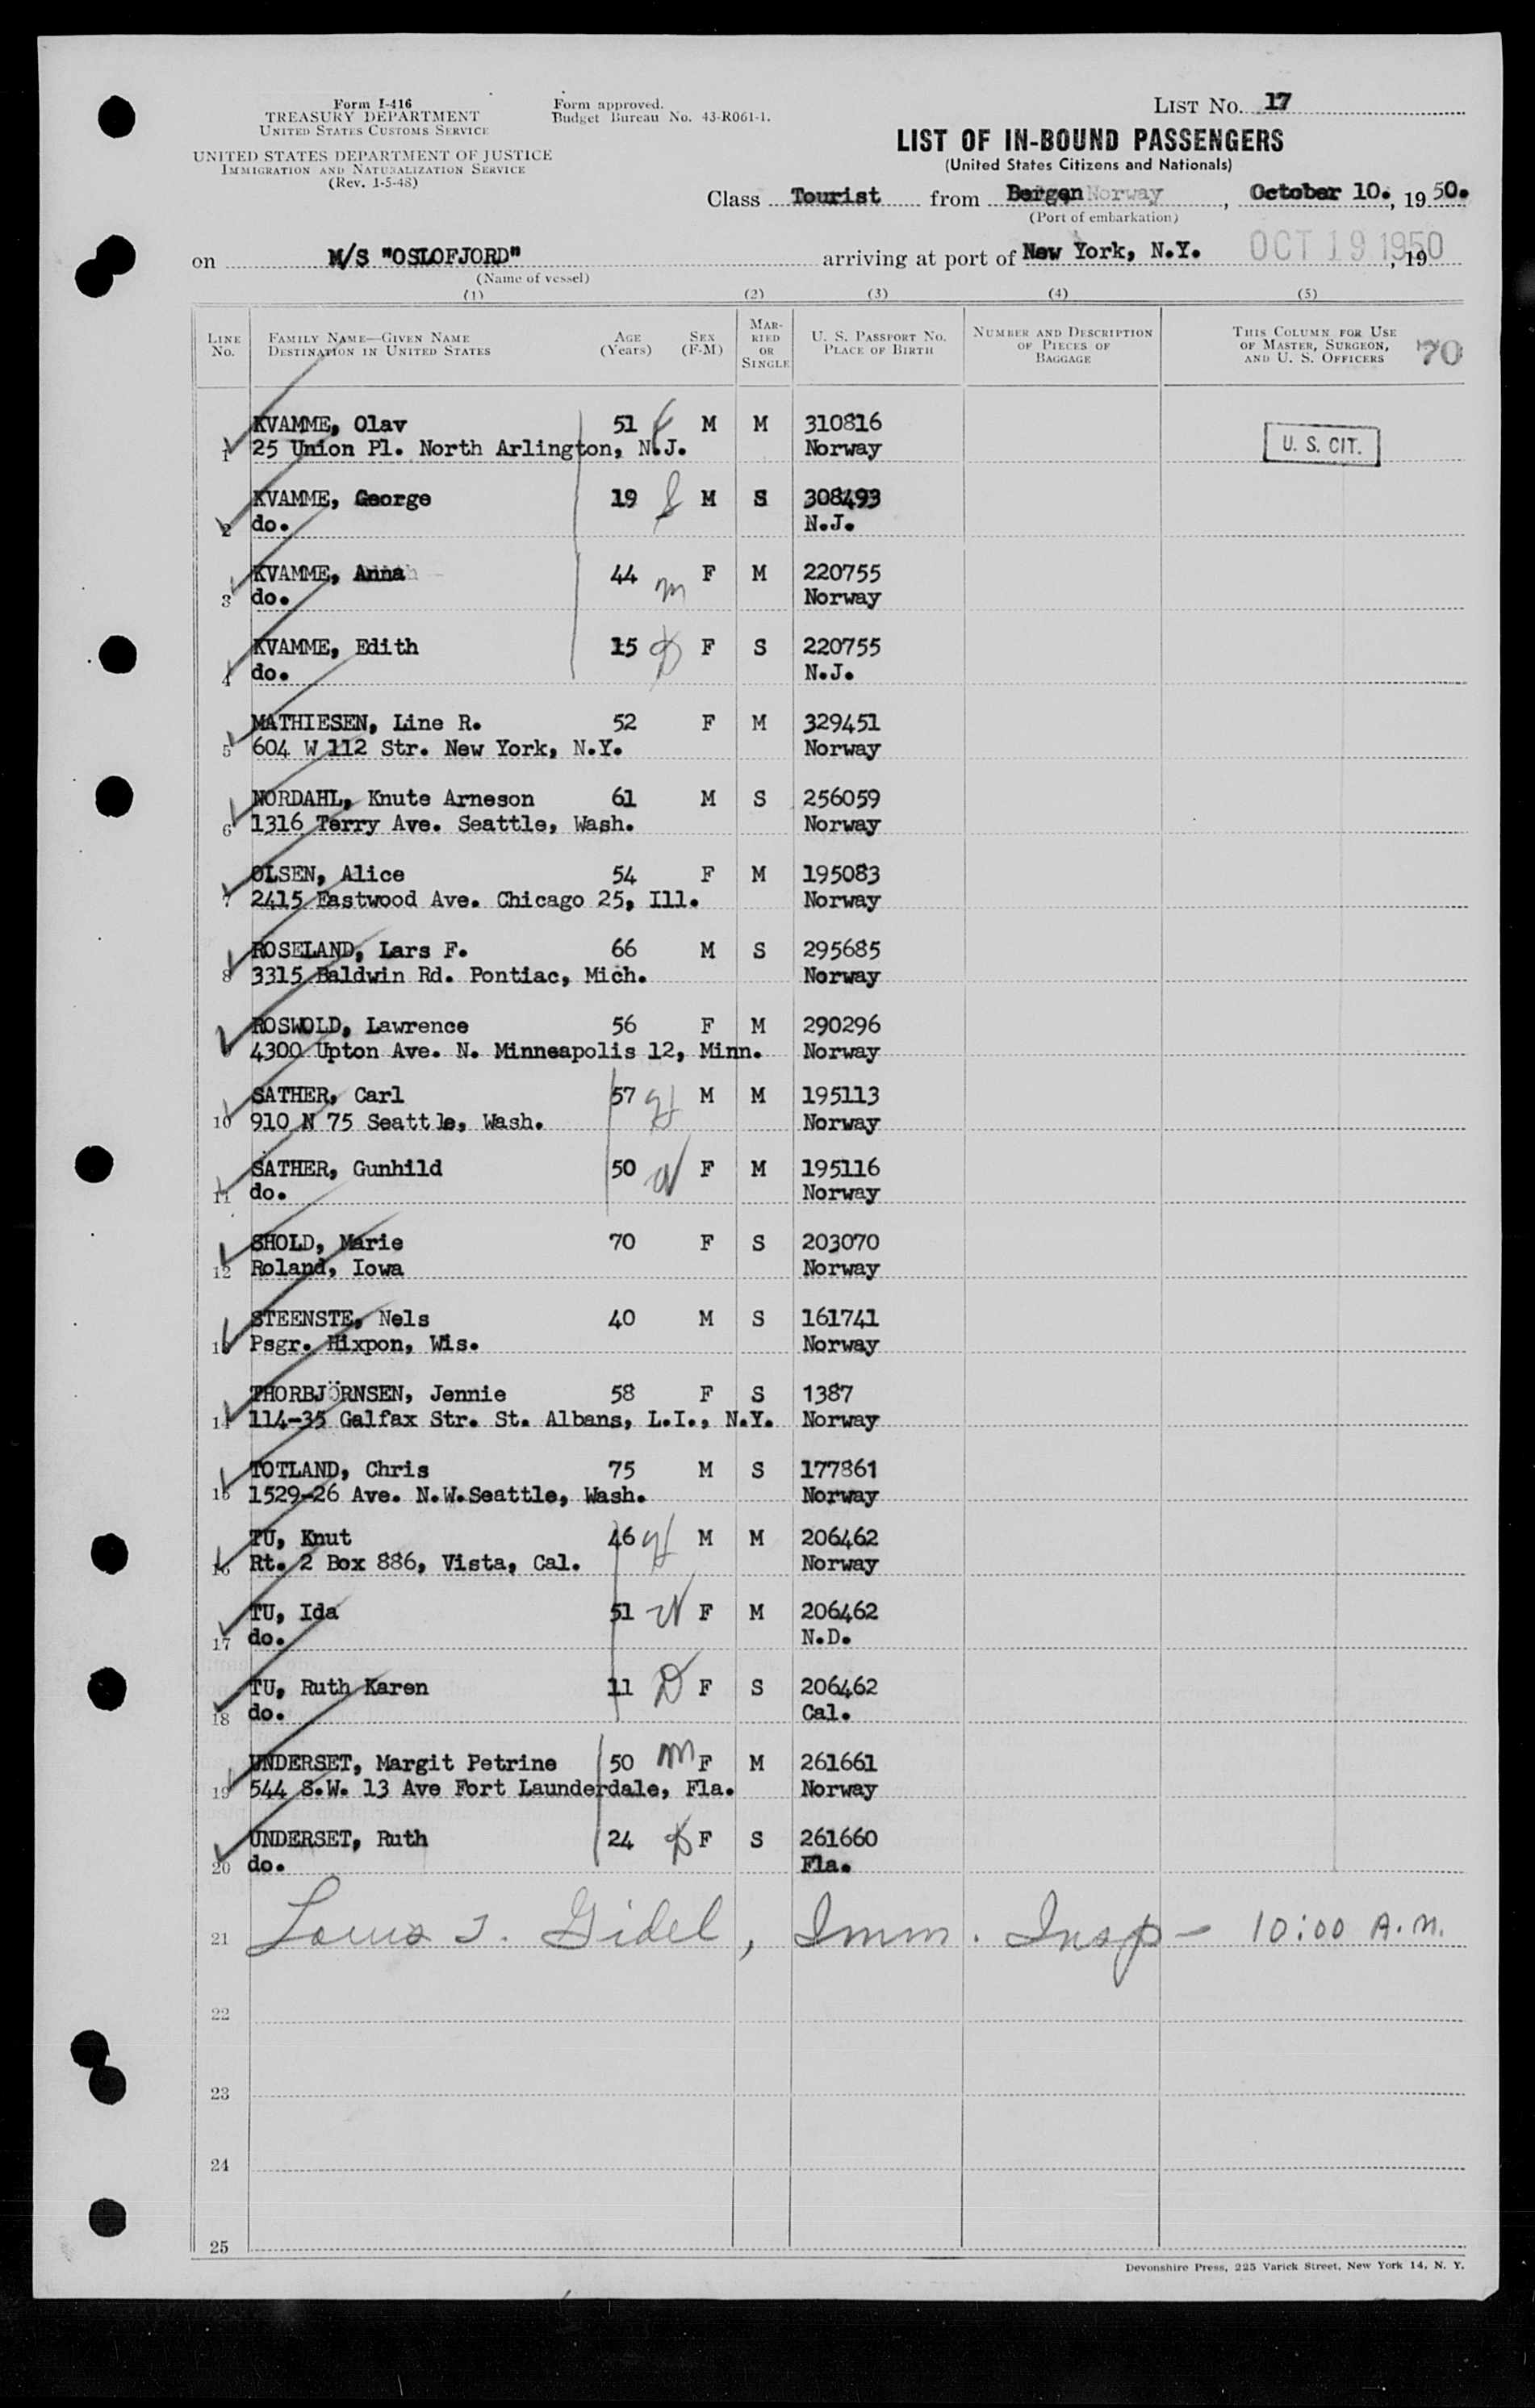 Form I-416
TREASURY DEPARTMENT
UNITED STATES CUSTOMS SERVICE
UNITED STATES DEPARTMENT OF JUSTICE
IMMIGRATION AND NATURALIZATION SERVICE
(Rev. 1-5-48)
Form approved.
Budget Bureau No. 43-R061-1.
LIST NO. 17
LIST OF IN-BOUND PASSENGERS
(United States Citizens and Nationals)
Class Tourist from Bergen Norway, October 10., 19 50.
(Port of embarkation)
on M/S "OSLOFJORD" arriving at port of New York, N.Y. OCT 19 1950, 19
(Name of vessel)
(1) (2) (3) (4) (5)
LINE NO. FAMILY NAME—GIVEN NAME DESTINATION IN UNITED STATES AGE (Years) SEX (F-M) MARRIED OR SINGLE U. S. PASSPORT NO. PLACE OF BIRTH NUMBER AND DESCRIPTION OF PIECES OF BAGGAGE THIS COLUMN FOR USE OF MASTER, SURGEON, AND U. S. OFFICERS 70
KVAMME, Olav 51 f M M 310816
1 25 Union Pl. North Arlington, N.J. Norway U. S. CIT.
KVAMME, George 19 S M S 308493
2 do. N.J.
KVAMME, Anna 44 m F M 220755
3 do. Norway
KVAMME, Edith 15 D F S 220755
4 do. N.J.
MATHIESEN, Line R. 52 F M 329451
5 604 W 112 Str. New York, N.Y. Norway
NORDAHL, Knute Arneson 61 M S 256059
6 1316 Terry Ave. Seattle, Wash. Norway
OLSEN, Alice 54 F M 195083
7 2415 Eastwood Ave. Chicago 25, Ill. Norway
ROSELAND, Lars F. 66 M S 295685
8 3315 Baldwin Rd. Pontiac, Mich. Norway
ROSWOLD, Lawrence 56 F M 290296
4300 Upton Ave. N. Minneapolis 12, Minn. Norway
SATHER, Carl 57 H M M 195113
10 910 N 75 Seattle, Wash. Norway
SATHER, Gunhild 50 W F M 195116
11 do. Norway
SHOLD, Marie 70 F S 203070
12 Roland, Iowa Norway
STEENSTE, Nels 40 M S 161741
13 Psgr. Hixpon, Wis. Norway
THORBJÖRNSEN, Jennie 58 F S 1387
14 114-35 Galfax Str. St. Albans, L.I., N.Y. Norway
TOTLAND, Chris 75 M S 177861
15 1529-26 Ave. N.W.Seattle, Wash. Norway
TU, Knut 46 H M M 206462
16 Rt. 2 Box 886, Vista, Cal. Norway
TU, Ida 51 W F M 206462
17 do. N.D.
TU, Ruth Karen 11 D F S 206462
18 do. Cal.
UNDERSET, Margit Petrine 50 m F M 261661
19 544 S.W. 13 Ave Fort Launderdale, Fla. Norway
UNDERSET, Ruth 24 D F S 261660
20 do. Fla.
21 Louis J. Gidel, Imm. Insp - 10:00 A.M.
22
23
24
25
Devonshire Press, 225 Varick Street, New York 14, N. Y.